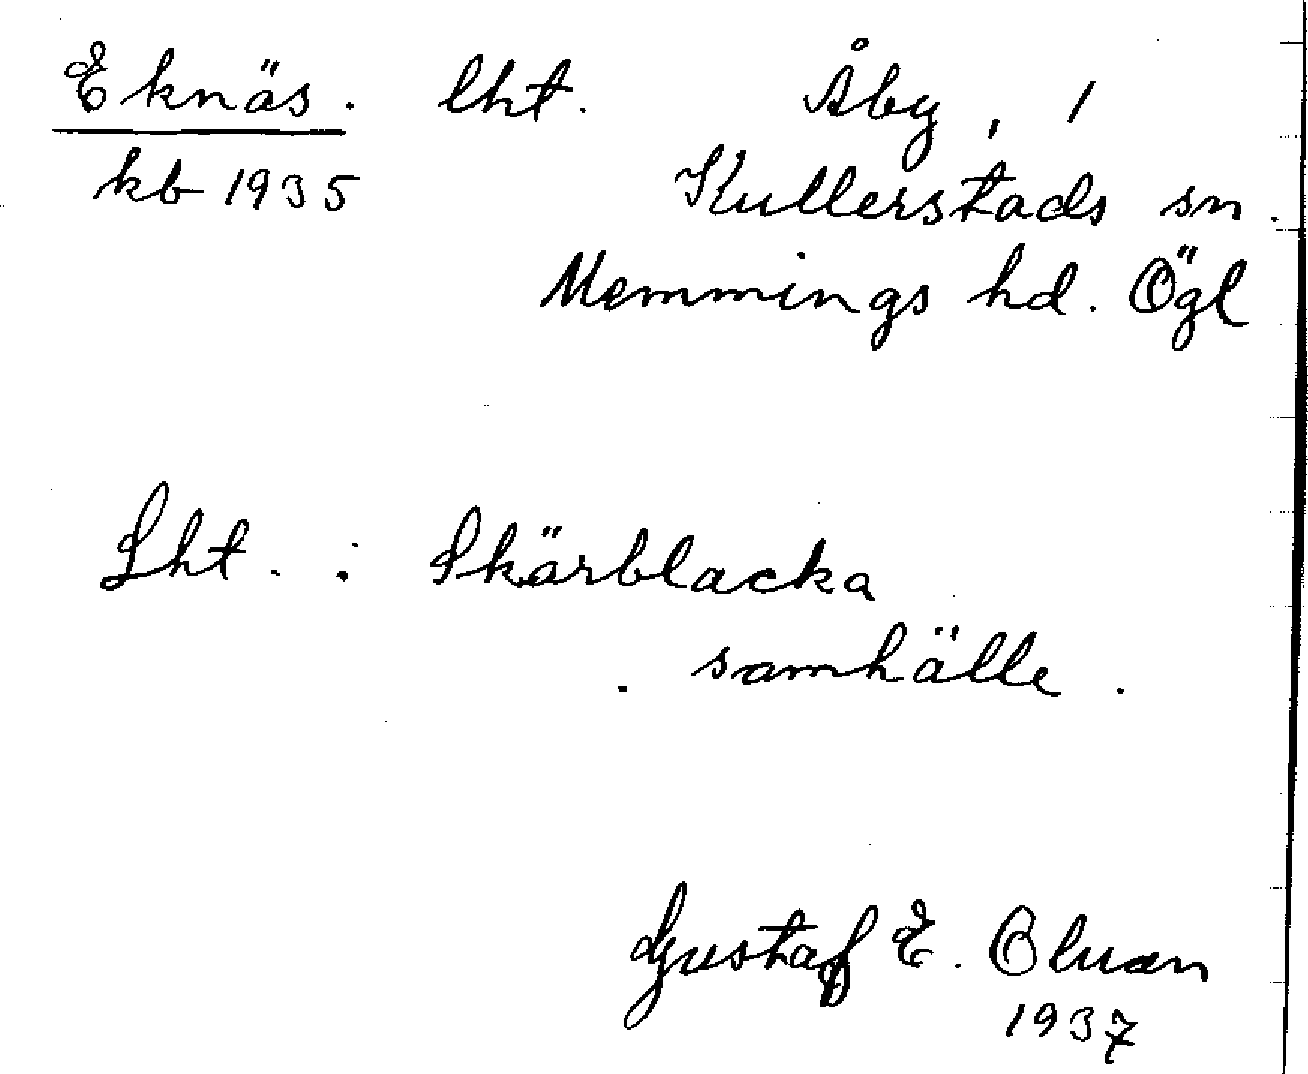 Eknäs. lht. Åby, 1
kb 1935 Kullerstads sn.
Memmings hd. Ögl
Lht. : Skärblacka
samhälle.
Gustaf E. Oluan
1937